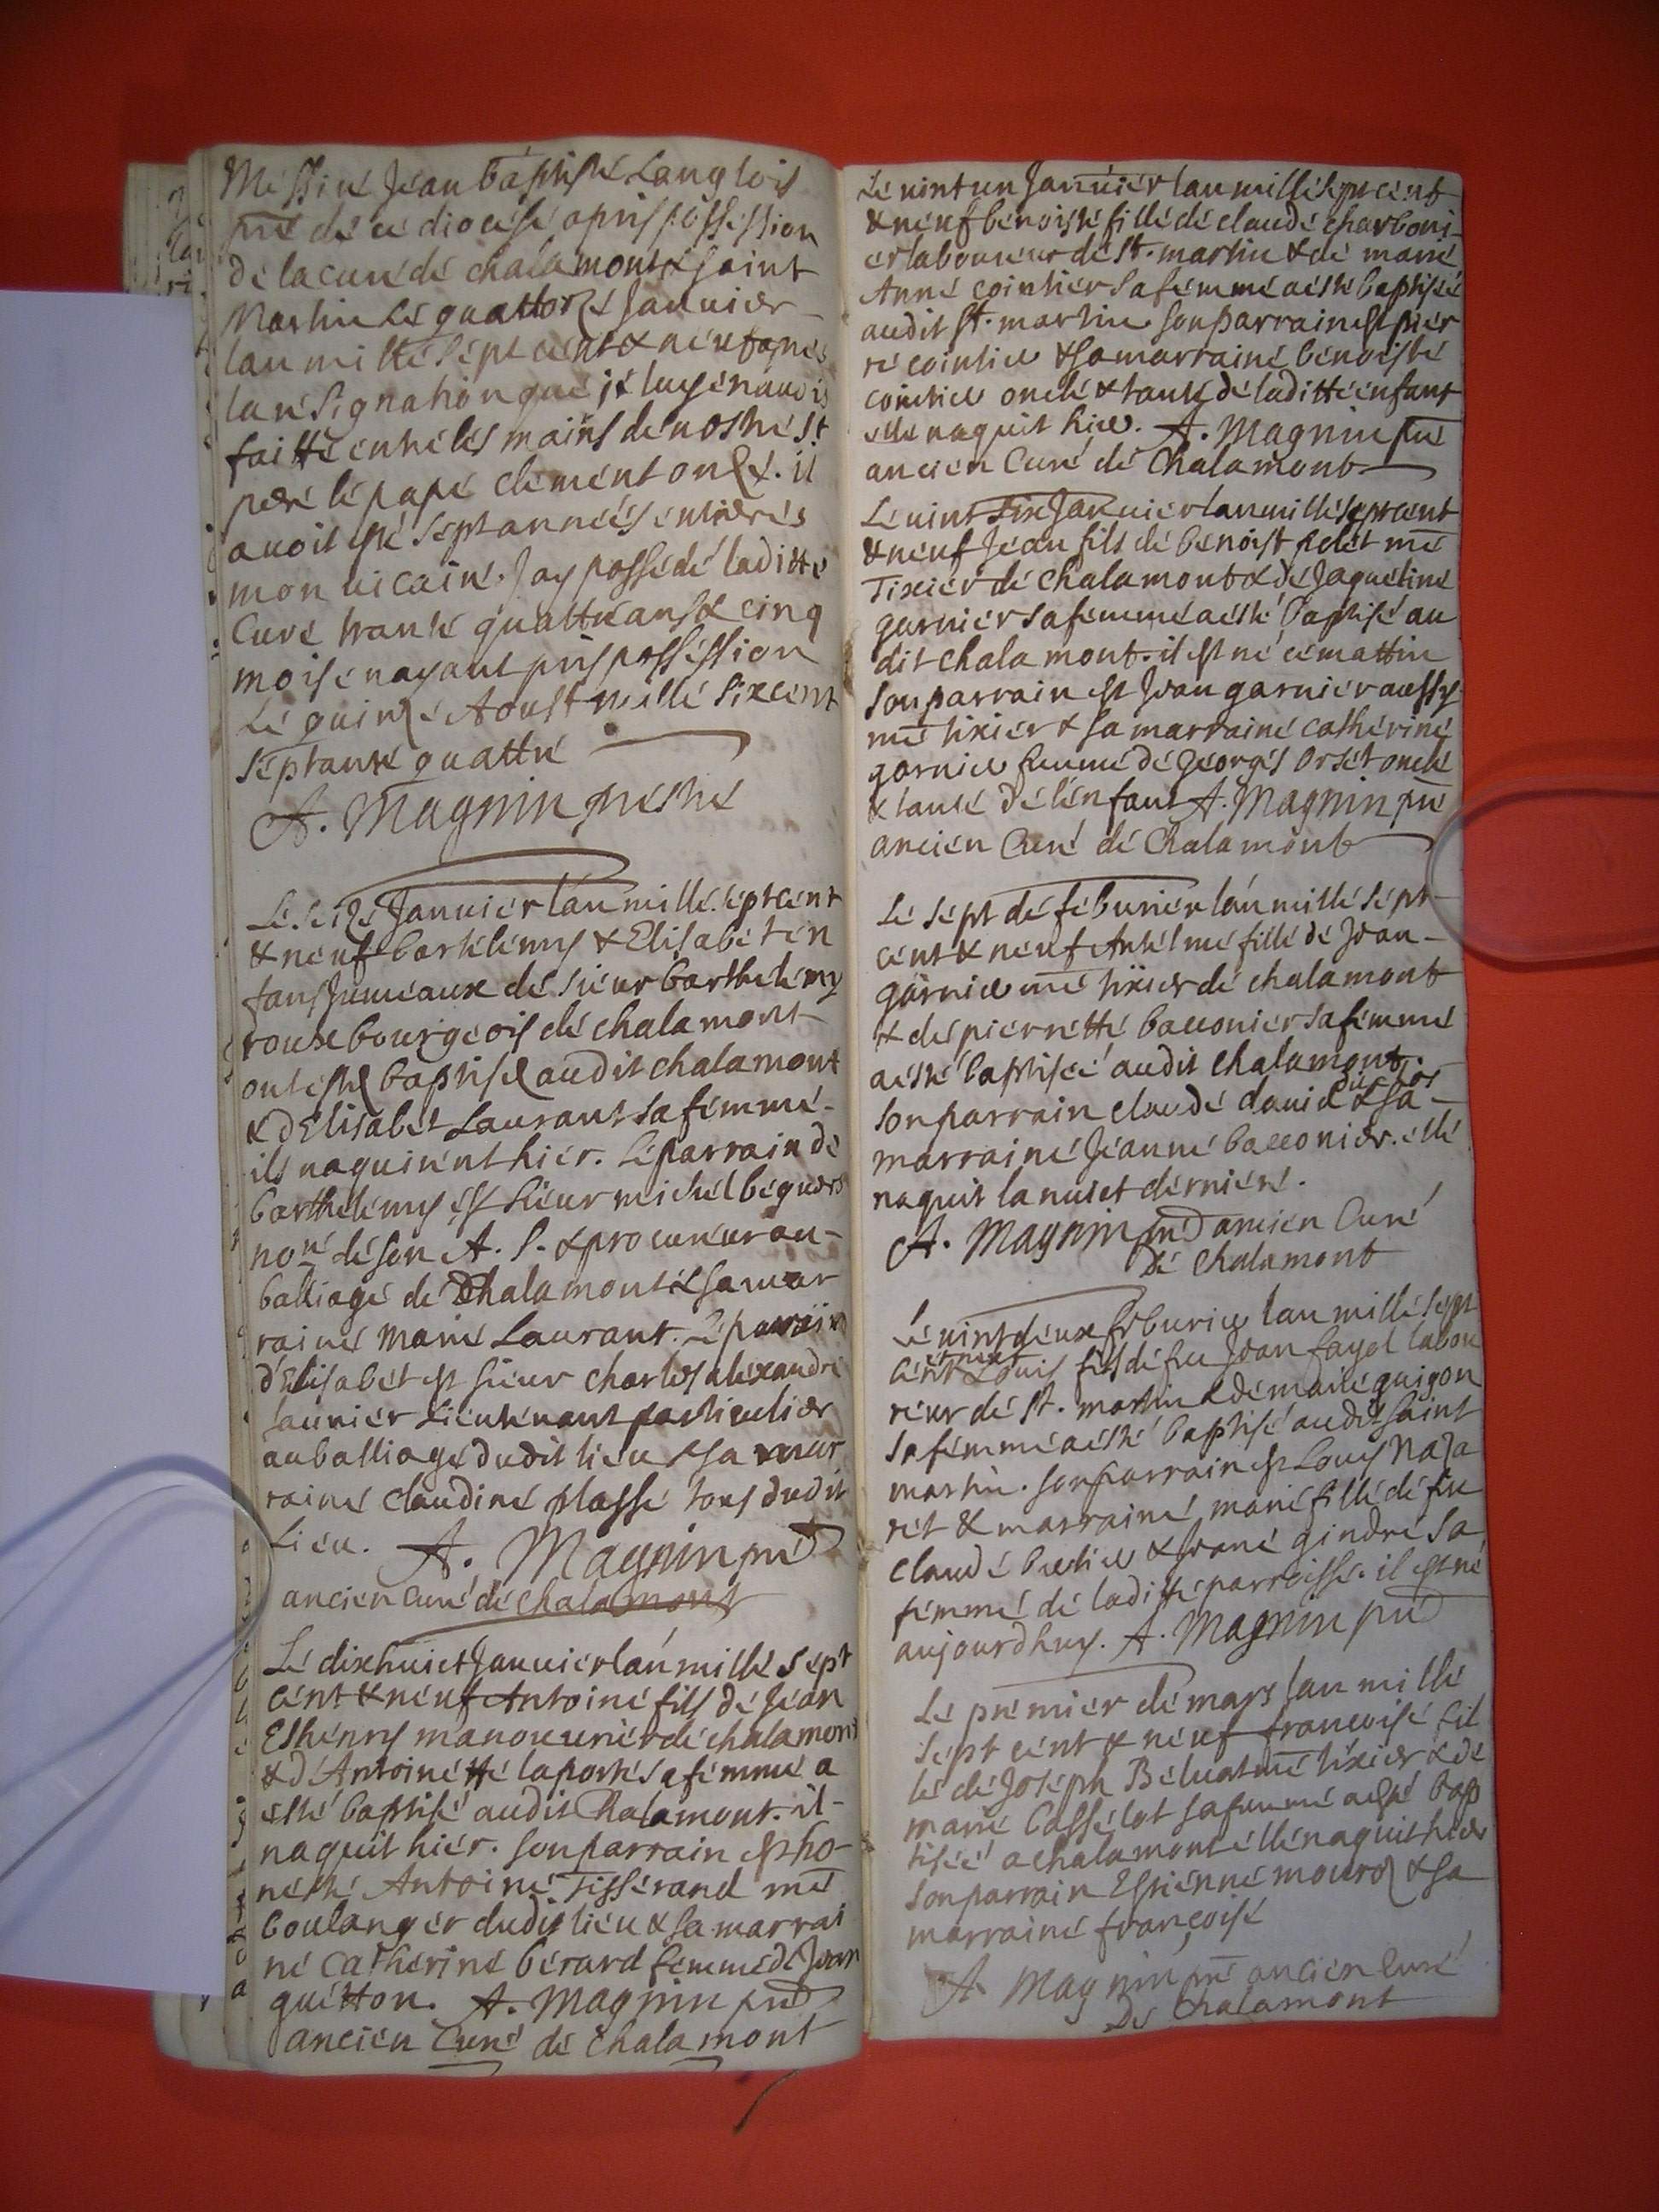 Messire Jean baptiste Langlois
pre de ce diocese a pris possession
de la cure de chalamont & saint
Martin Le quattorze Januier
lan mille sept cent & neuf apres
la resignation que je luy en auois
faitte entre les mains de nostre st
pere le pape clement onze. il
auoit esté sept années entieres
mon vicaire. Jay possedé laditte
Cure trante quattre ans & cinq
mois en ayant pris possession
Le quinze Aoust mille six cent
septante quattre
A. Magnin prestre
Le seize Januier lan mille sept cent
& neuf barthelemy & Elisabet en
fans Jumeaux de sieur barthelemy
roux bourgeois de chalamont
ont estez baptisez audit chalamont
& d'Elisabet Laurant sa femme.
ils naquirent hier. Le parrain de
barthelemy est sieur michel beguers
nore de son A. S. & procureur au
balliage de Chalamont & sa mar
raine marie Laurant. Le parrain
d'Elisabet est sieur charles alexandre
saunier Lieutenant particulier
au balliage dudit lieu & sa mar
raine Claudine plasse tous dudit
Lieu. A. Magnin pre
ancien curé de chalamont
Le dixhuict Januier lan mille sept
cent & neuf Antoine fils de Jean
Esthenny manouurier de chalamont
& d'Antoinette laporte sa femme a
esté baptisé audit Chalamont. il
naquit hier. son parrain est ho-
neste Antoine Tisserand me
boulanger dudit lieu & sa marrai
ne Catherine bérard femme de Jean
guitton. A. Magnin pre
ancien Curé de Chalamont
Le vint un Januier lan mille sept cent
& neuf benoiste fille de claude charboni-
er laboureur de St. martin & de marie
Anne cointier sa femme a esté baptisée
audit St. martin son parrain est pier
re cointier & sa marraine benoiste
cointier oncle & tante de laditte enfant
elle naquit hier. A. Magnin pre
ancien Curé de Chalamont
Le vint six Januier lan mille sept cent
& neuf Jean fils de benoist pelet me
Tixier de Chalamont & de Jaqueline
garnier sa femme a esté baptisé au
dit chalamont. il est né ce mattin
son parrain est Jean garnier aussy
me tixier & sa marraine catherine
garnier femme de georges orset oncle
& tante de lenfant A. Magnin pre
ancien Curé de Chalamont
Le sept de feburier lan mille sept
cent & neuf Antelme fille de Jean
garnier me tixier de chalamont
& de pierrette bacconier sa femme
a esté baptisée audit Chalamont.
son parrain claude dauid & sa
marraine Jeanne bacconier. elle
naquit la nuict derniere.
A. Magnin pre ancien Curé
de Chalamont
Le vint deux feburier lan mille sept
cent et neuf Louis fils de feu Jean fayel labou
reur de St. martin & de marie guigon
sa femme a esté baptisé audit saint
martin. son parrain est Louis Naza
ret & marraine marie fille de feu
claude & Jeane gindre sa
femme de laditte parroisse. il est né
aujourdhuy. A. Magnin pre
Le premier de mars lan mille
sept cent & neuf francoise fil
le de Joseph Beluat me tixier & de
marie Casselot sa femme a esté bap
tisée a chalamont elle naquit hier
son parrain Estienne mouroz & sa
marraine françoise
A. Magnin pre ancien Curé
De Chalamont